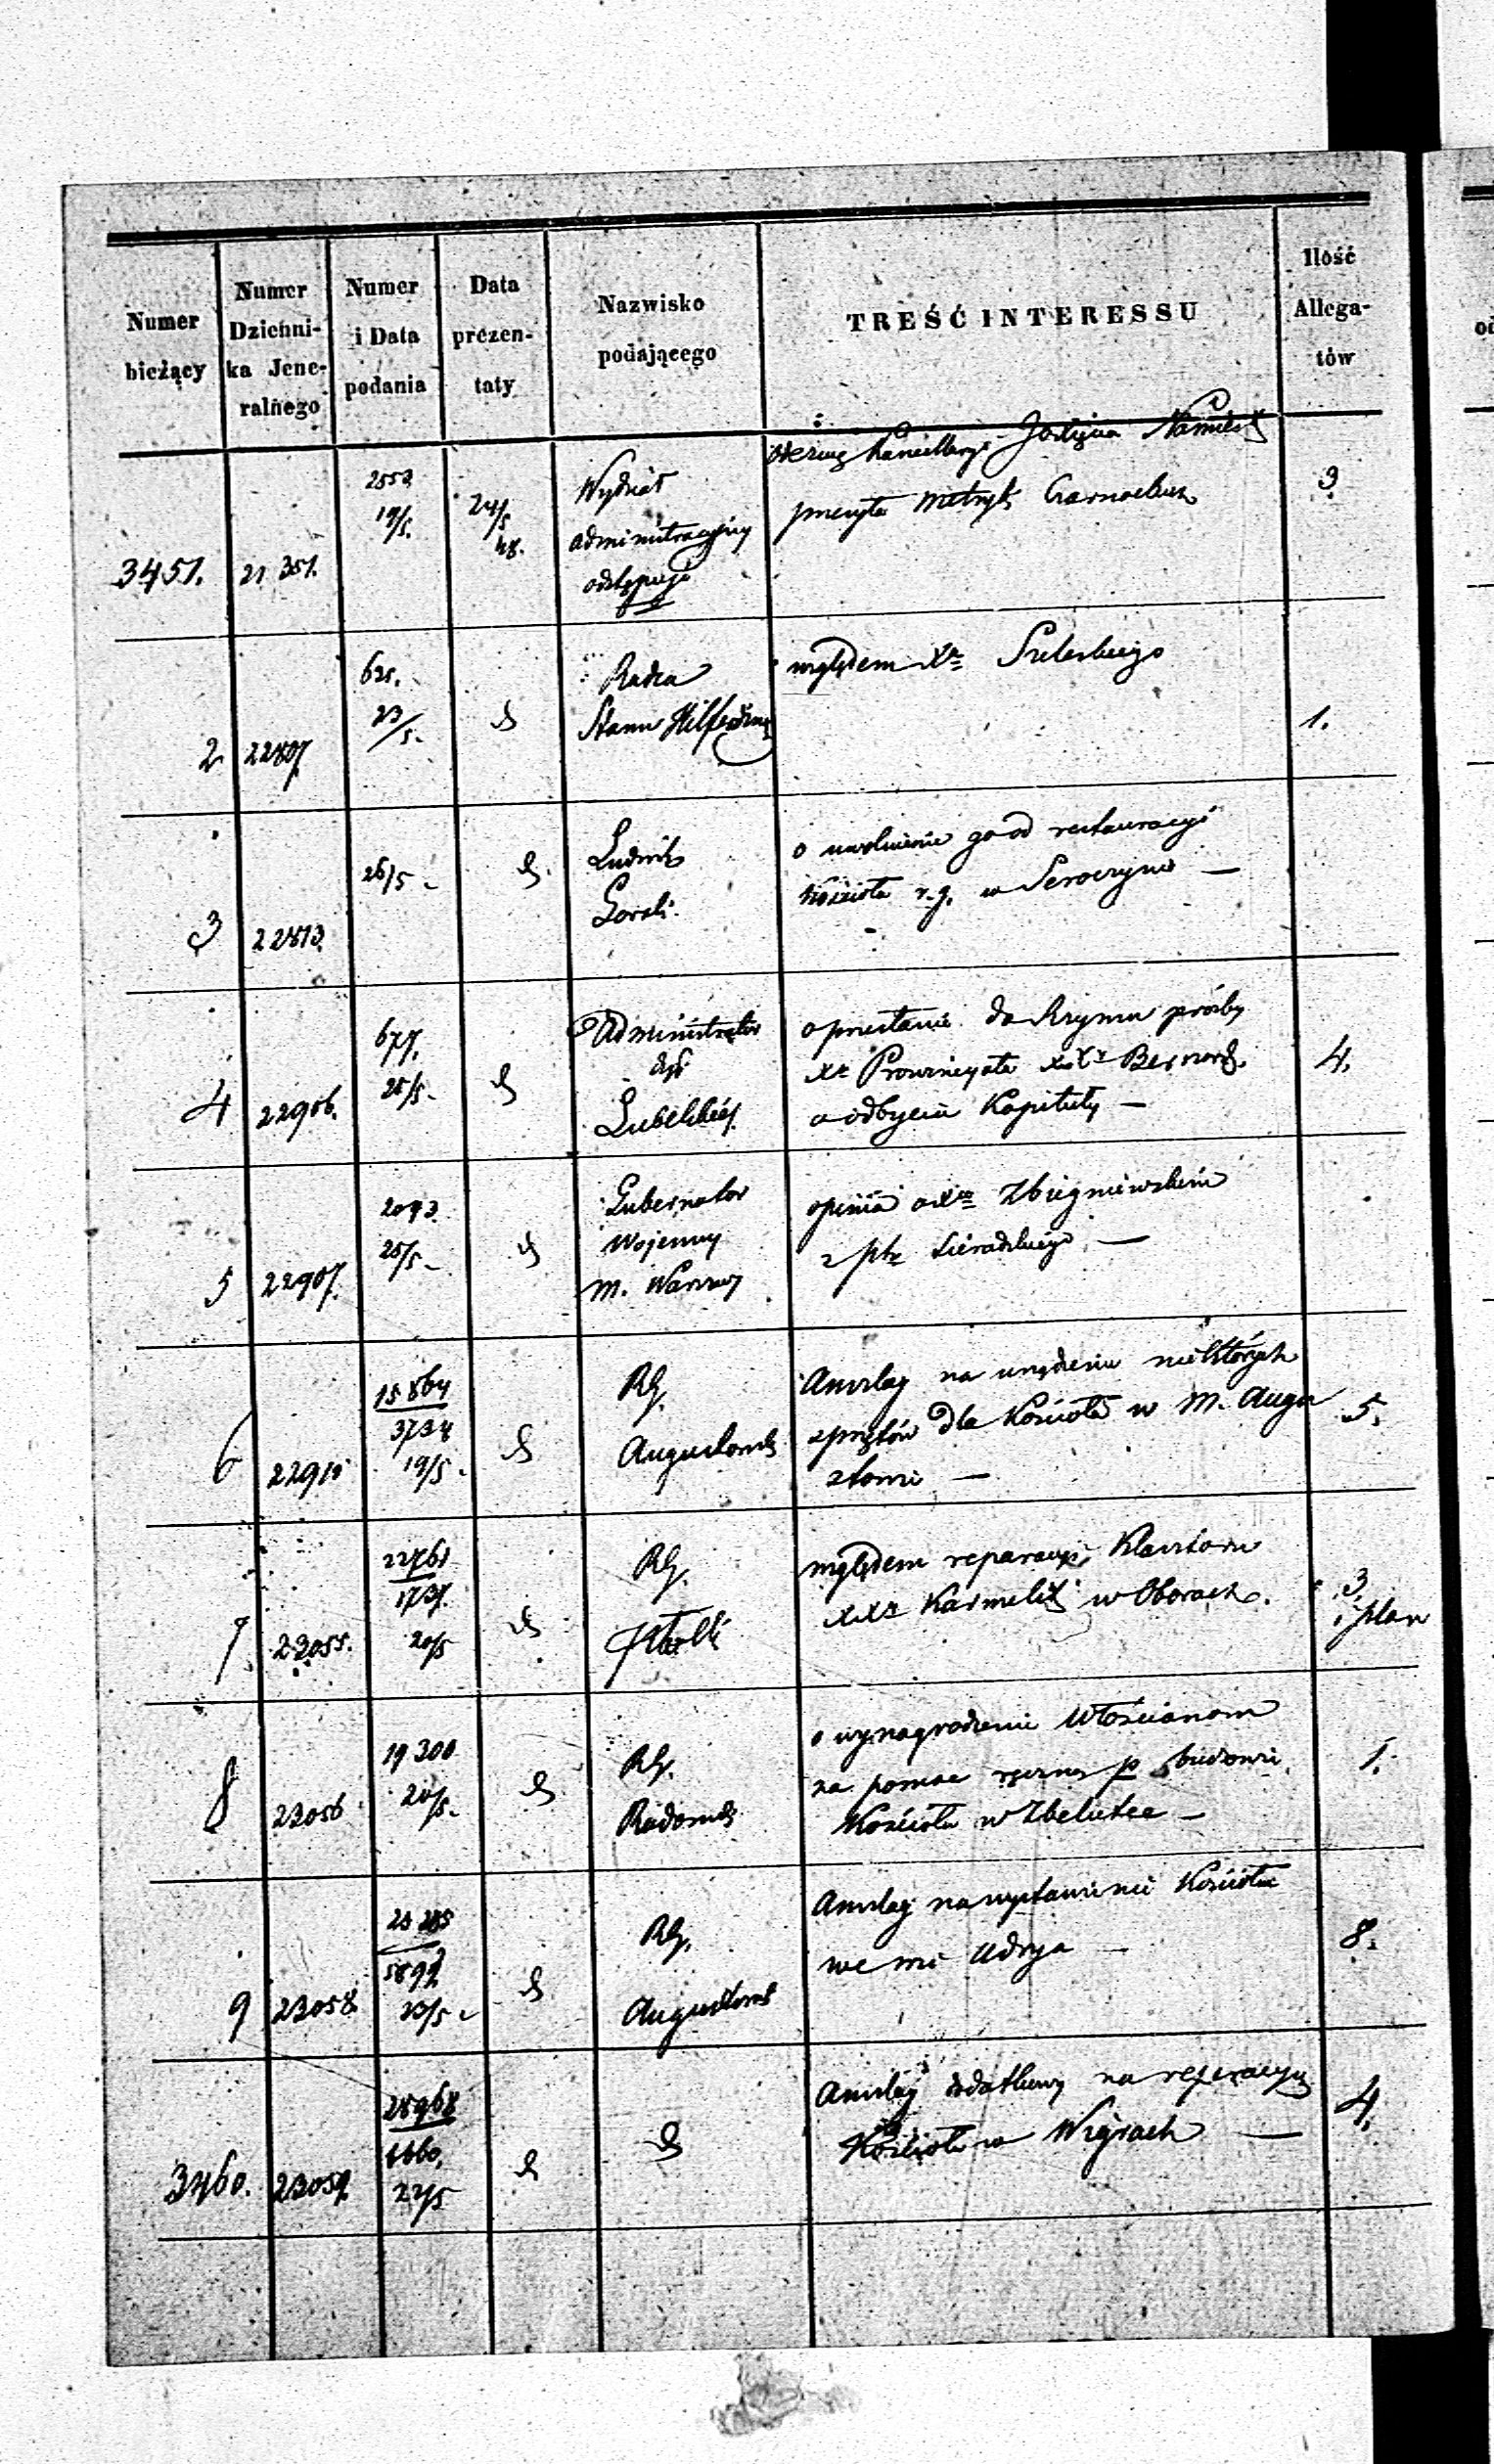 Numer bieżący
Numer Dzienni-ka Jene-ralnego
Numer i Data podania
Data prezen-taty
Nazwisko podającego
TREŚĆ INTERESSU
Ilość Allega-tów
3451. 21351. 2553 19/5. 24/5 48. Wydział administracyjny odstępuje
odezwę Kancellaryi Xięcia Namiest
3
2 22807 625. 23/5. Radca Stanu Hilferding
względem Xa
1.
3 22813 26/5 Ludwik Gorski
o uwolnienie go od restauracyi
Kościoła r.g. w Seroczynie —
4 22906. 677. 25/5. Administrator dyi Lubelskiej
o przesłanie do Rzymu prośby
Xa Prowincyała XXy Bernard.
o odbycie Kapituły —
4.
5 22907. 2093. 25/5. Gubernator Wojenny m. Warszawy
opinia o Xu Zbigniewskim
z ptu Sieradzkiego —
6 22910 15864 3734 19/5. RG. Augustowski
Anszlag na urządzenie niektórych
zprzętów dla Kościoła w M. Augu
stowie —
5.
7 23055. 22761 1737. 20/5 RG. Płocki
względem reparacyi Klasztoru
XXy Karmelit w Oborach.
3 i plan
8 23056 19300 20/5. RG. Radomski
o wynagrodzenie Włościanom
za pomoc ręczną p budowie
Kościoła w Zbelutce —
1.
9 23058 23/5. RG. Augustowski
Anszlag na wystawienie Kościoła
we wsi Udryn —
8.
3460. 23059. 25968 6660. 22/5
Anszlag dodatkowy na reperacyą
Kościoła w Wigrach —
4.